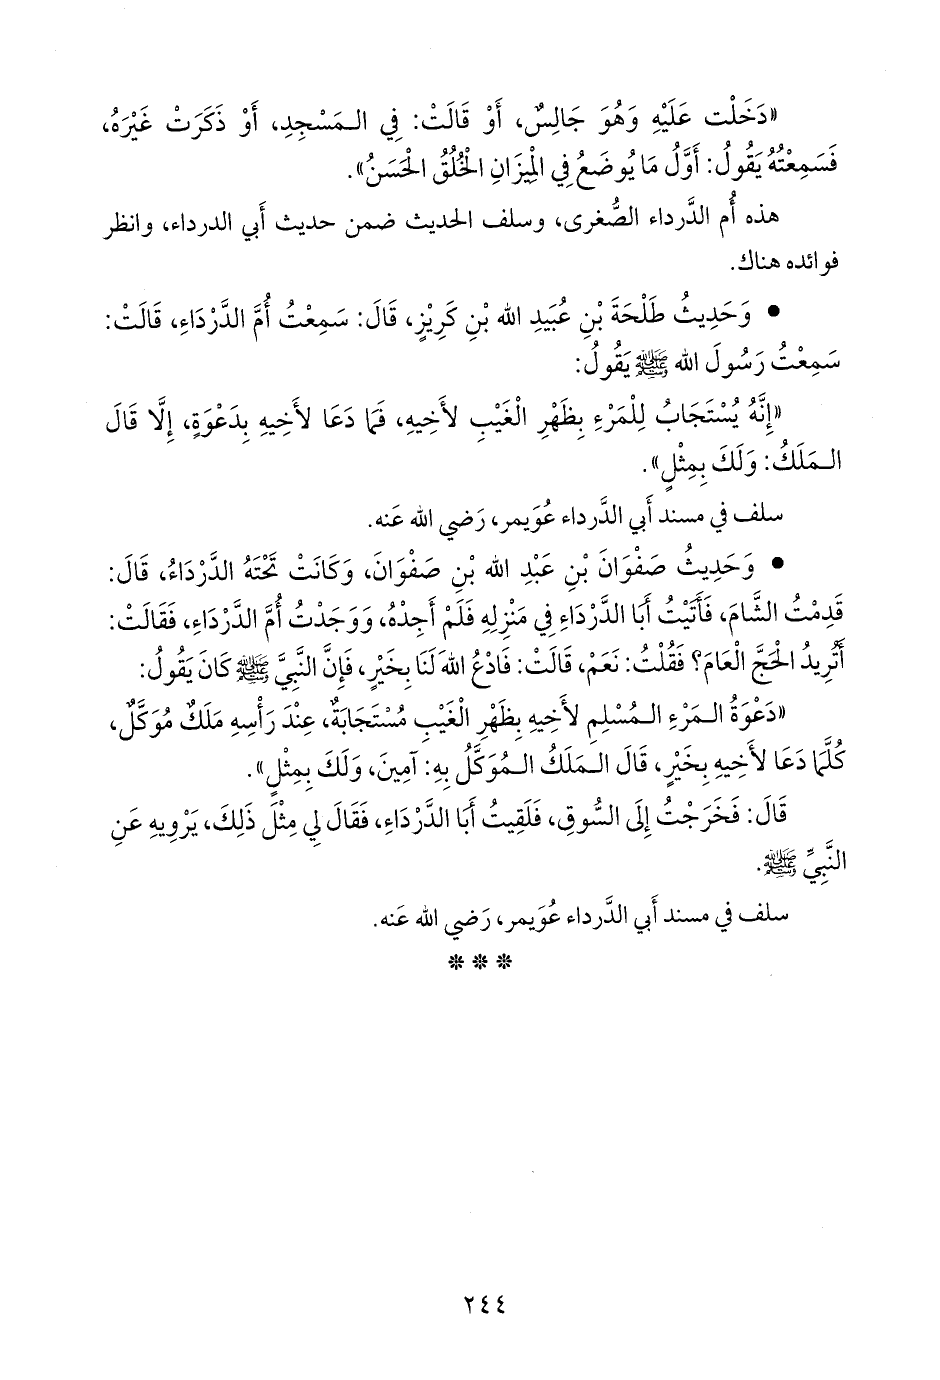 «دَخَلْت عَلَيْهِ وَهُوَ جَالِسٌ، أَوْ قَالَتْ: فِي الـمَسْجِدِ، أَوْ ذَكَرَتْ غَيْرَهُ،
فَسَمِعْتُهُ يَقُولُ: أَوَّلُ مَا يُوضَعُ فِي الْمِيزَانِ الْخُلُقُ الْحَسَنُ».
هذه أُم الدَّرداء الصُّغرى، وسلف الحديث ضمن حديث أَبي الدرداء، وانظر
فوائده هناك.
• وَحَدِيثُ طَلْحَةَ بْنِ عُبَيدِ الله بْنِ كَرِيْزٍ، قَالَ: سَمِعْتُ أُمَّ الدَّرْدَاءِ، قَالَتْ:
سَمِعْتُ رَسُولَ الله ﷺ يَقُولُ:
«إِنَّهُ يُسْتَجَابُ لِلْمَرْءِ بِظَهْرِ الْغَيْبِ لأَخِيهِ، فَمَا دَعَا لأَخِيهِ بِدَعْوَةٍ، إِلَّا قَالَ
الـمَلَكُ: وَلَكَ بِمِثْلٍ».
سلف في مسند أَبي الدَّرداء عُوَيمر، رَضي الله عَنه.
• وَحَدِيثُ صَفْوَانَ بْنِ عَبْدِ الله بْنِ صَفْوَانَ، وَكَانَتْ تَحْتَهُ الدَّرْدَاءُ، قَالَ:
قَدِمْتُ الشَّامَ، فَأَتَيْتُ أَبَا الدَّرْدَاءِ فِي مَنْزِلِهِ فَلَمْ أَجِدْهُ، وَوَجَدْتُ أُمَّ الدَّرْدَاءِ، فَقَالَتْ:
أَتُرِيدُ الْحَجَّ الْعَامَ؟ فَقُلْتُ: نَعَمْ، قَالَتْ: فَادْعُ اللهَ لَنَا بِخَيْرٍ، فَإِنَّ النَّبِيَّ ﷺ كَانَ يَقُولُ:
«دَعْوَةُ الـمَرْءِ الـمُسْلِمِ لأَخِيهِ بِظَهْرِ الْغَيْبِ مُسْتَجَابَةٌ، عِنْدَ رَأْسِهِ مَلَكٌ مُوَكَّلٌ،
كُلَّمَا دَعَا لأَخِيهِ بِخَيْرٍ، قَالَ الـمَلَكُ الـمُوَكَّلُ بِهِ: آمِينَ، وَلَكَ بِمِثْلٍ».
قَالَ: فَخَرَجْتُ إِلَى السُّوقِ، فَلَقِيتُ أَبَا الدَّرْدَاءِ، فَقَالَ لِي مِثْلَ ذَلِكَ، يَرْوِيهِ عَنِ
النَّبِيِّ ﷺ.
سلف في مسند أَبي الدَّرداء عُوَيمر، رَضي الله عَنه.
* * *
٢٤٤